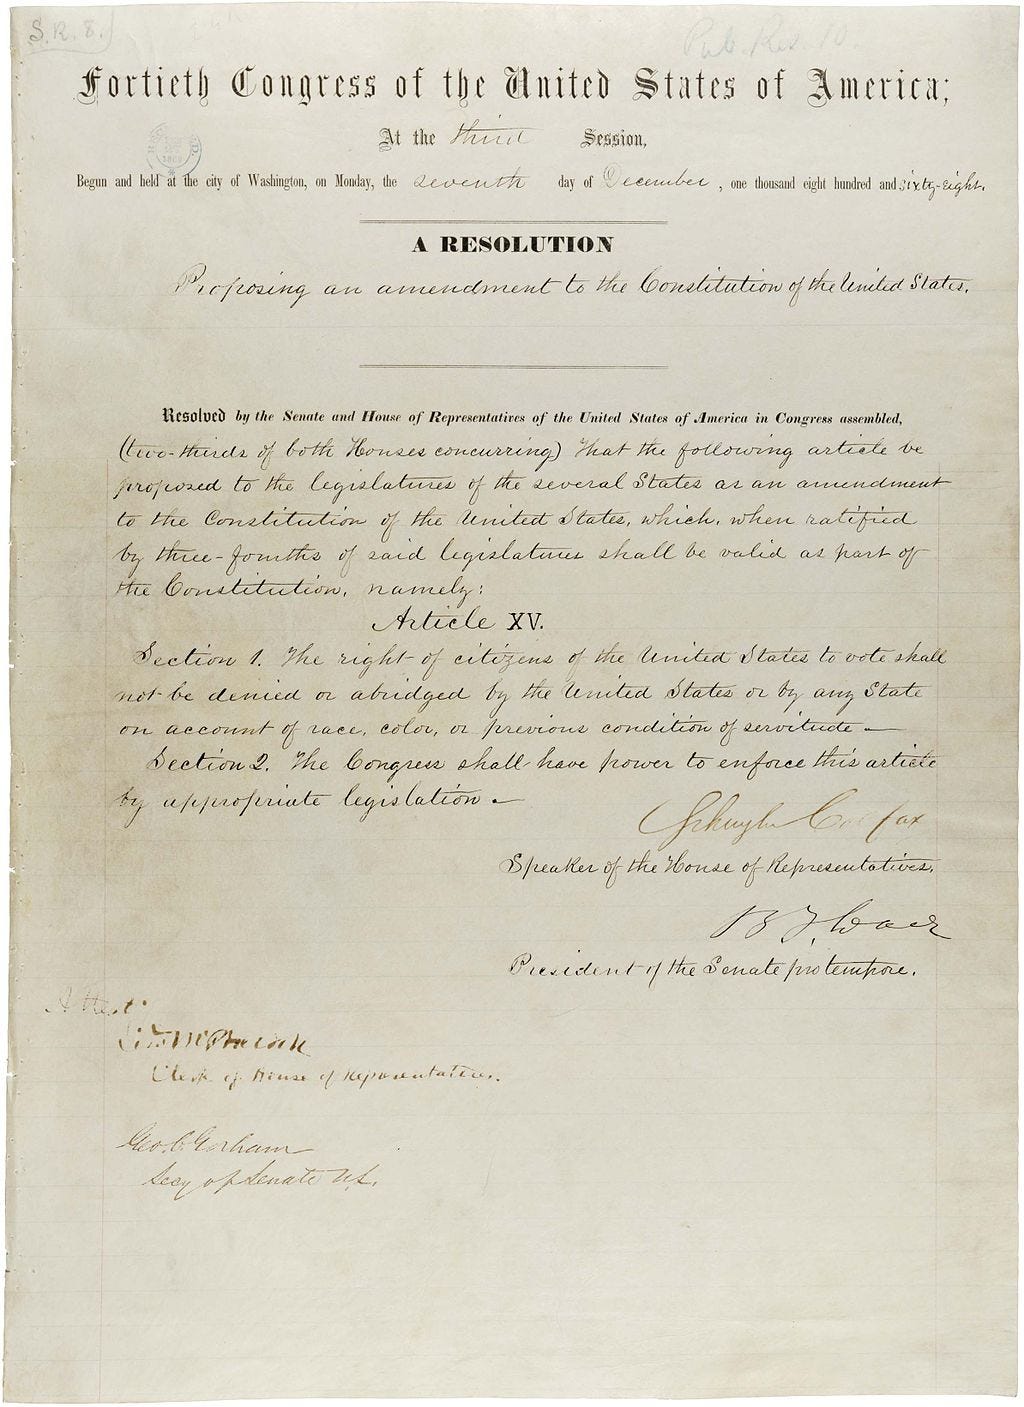 S.R. 8.
Pub. Res. 10.
Fortieth Congress of the United States of America;
At the third Session,
Begun and held at the city of Washington, on Monday, the seventh day of December, one thousand eight hundred and sixty-eight.
A RESOLUTION
Proposing an amendment to the Constitution of the United States.
Resolved by the Senate and House of Representatives of the United States of America in Congress assembled,
(two-thirds of both Houses concurring) That the following article be
proposed to the legislatures of the several States as an amendment
to the Constitution of the United States, which, when ratified
by three-fourths of said legislatures shall be valid as part of
the Constitution, namely:
Article XV.
Section 1. The right of citizens of the United States to vote shall
not be denied or abridged by the United States or by any State
on account of race, color, or previous condition of servitude—
Section 2. The Congress shall have power to enforce this article
by appropriate legislation—
Schuyler Colfax
Speaker of the House of Representatives.
B F Wade
President of the Senate pro tempore.
Attest:
McPherson
Clerk of House of Representatives.
Geo. C. Gorham
Secy of Senate U.S.